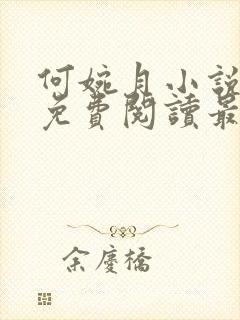 何婉月小說
免費閱讀最
余慶橋